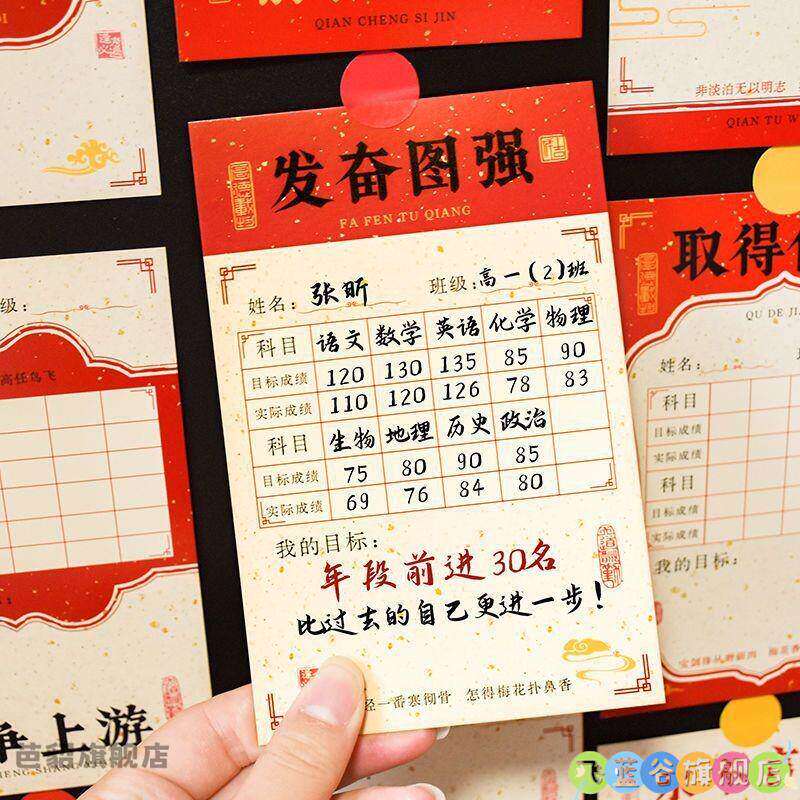 QIAN CHENG SI JIN
非淡泊无以明志
发奋图强
FA FEN TU QIANG
姓名: 张昕 班级: 高一(2)班
科目 语文 数学 英语 化学 物理
目标成绩 120 130 135 85 90
实际成绩 110 120 126 78 83
科目 生物 地理 历史 政治
目标成绩 75 80 90 85
实际成绩 69 76 84 80
我的目标:
年段前进30名
比过去的自己更进一步!
经一番寒彻骨 怎得梅花扑鼻香
QIAN TU W
取得
QU DE JI
姓名:
科目
目标成绩
实际成绩
科目
目标成绩
实际成绩
我的目标:
宝剑锋从磨砺出 梅花香
级:
高任鸟飞
争上游
CHENG SHANG
芭貂旗舰店
飞
蓝谷旗舰店